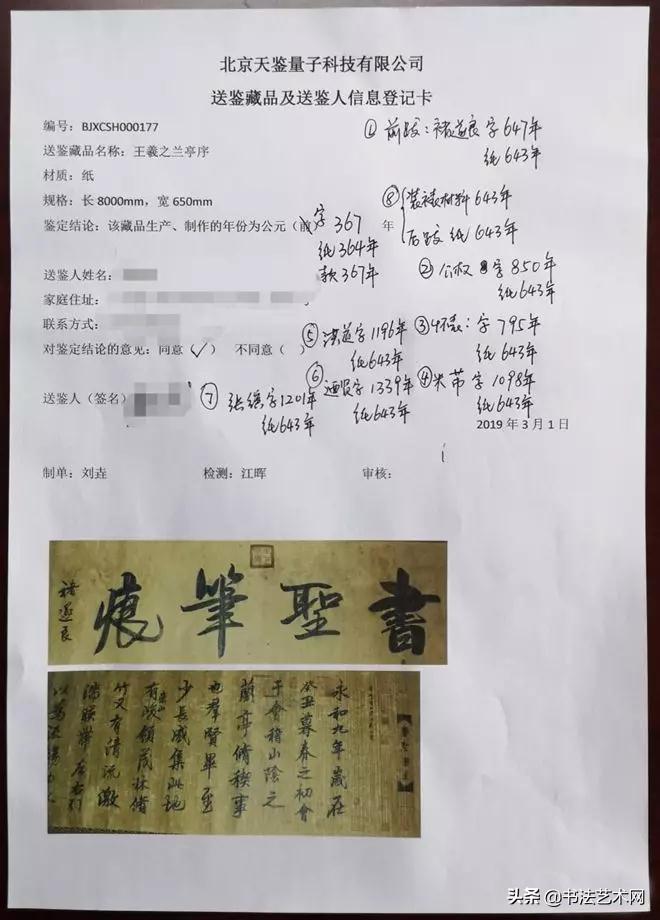 北京天鉴量子科技有限公司
送鉴藏品及送鉴人信息登记卡
编号：BJXCSH000177
① 前跋：褚遂良 字 647年
纸 643年
送鉴藏品名称：王羲之兰亭序
材质：纸
规格：长 8000mm，宽 650mm
⑧ 装裱材料 643年
后跋 纸 643年
鉴定结论：该藏品生产、制作的年份为公元（前） 年
字 367
纸 364年
款 367年
② 公权 字 850年
纸 643年
送鉴人姓名：
家庭住址：
联系方式：
⑤ 字 1196年
纸 643年
③ 字 795年
纸 643年
对鉴定结论的意见：同意（✓） 不同意（ ）
⑥ 字 1339年
纸 643年
④ 米芾 字 1098年
纸 643年
送鉴人（签名）
⑦ 字 1201年
纸 643年
2019 年 3 月 1 日
制单：刘垚 检测：江晖 审核：
書聖筆痕
褚遂良
永和九年歲在
癸丑暮春之初會
于會稽山陰之
蘭亭脩稧事
也羣賢畢至
少長咸集此地
有崇山
峻領茂林脩
竹又有清流激
湍暎帶左右引
以為流觴
头条 @书法艺术网